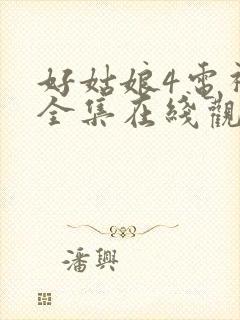 好姑娘4電視
全集在綫觀
潘興